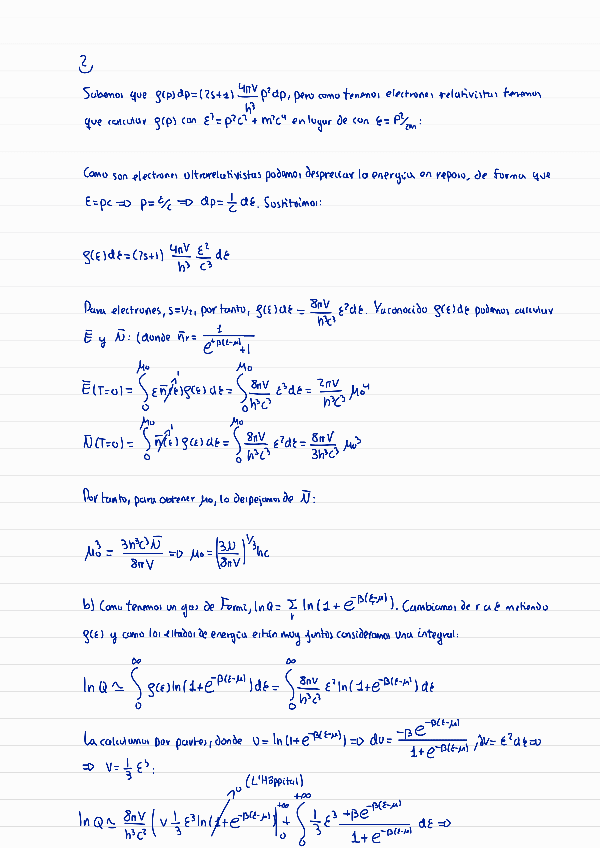 2)
Sabemos que ρ(p)dp=(2s+1) 4πV/h³ p²dp, pero como tenemos electrones relativistas tenemos
que calcular ρ(p) con ε²=p²c²+m²c⁴ en lugar de con ε=p²/2m:
Como son electrones ultrarelativistas podemos despreciar la energía en reposo, de forma que
ε=pc ⇒ p=ε/c ⇒ dp=1/c dε. Sustituimos:
ρ(ε)dε=(2s+1) 4πV/h³ ε²/c³ dε
Para electrones, s=1/2, por tanto, ρ(ε)dε = 8πV/h³c³ ε²dε. Ya conocido ρ(ε)dε podemos calcular
Ē y N̄: (donde n̄r = 1/(e^{+β(ε-μ)}+1)
Ē(T=0) = ∫₀^{μ₀} ε n̄(ε)¹ ρ(ε)dε = ∫₀^{μ₀} 8πV/h³c³ ε³dε = 2πV/h³c³ μ₀⁴
N̄(T=0) = ∫₀^{μ₀} n̄(ε)¹ ρ(ε)dε = ∫₀^{μ₀} 8πV/h³c³ ε²dε = 8πV/3h³c³ μ₀³
Por tanto, para obtener μ₀, lo despejamos de N̄:
μ₀³ = 3h³c³N̄/8πV ⇒ μ₀ = (3N/8πV)^{1/3} hc
b) Como tenemos un gas de Fermi, lnQ = Σ_r ln(1+e^{-β(ε-μ)}). Cambiamos de r a ε metiendo
ρ(ε) y como los estados de energía están muy juntos consideramos una integral:
lnQ ≃ ∫₀^∞ ρ(ε)ln(1+e^{-β(ε-μ)})dε = ∫₀^∞ 8πV/h³c³ ε²ln(1+e^{-β(ε-μ)})dε
La calculamos por partes, donde u=ln(1+e^{-β(ε-μ)}) ⇒ du = -βe^{-β(ε-μ)}/(1+e^{-β(ε-μ)}), dv=ε²dε ⇒
⇒ v=1/3 ε³:
0 (L'Hôppital)
lnQ ≃ 8πV/h³c³ ( 1/3 ε³ln(1+e^{-β(ε-μ)})|₀^{+∞} + ∫₀^{+∞} 1/3 ε³ +βe^{-β(ε-μ)}/(1+e^{-β(ε-μ)}) dε ⇒